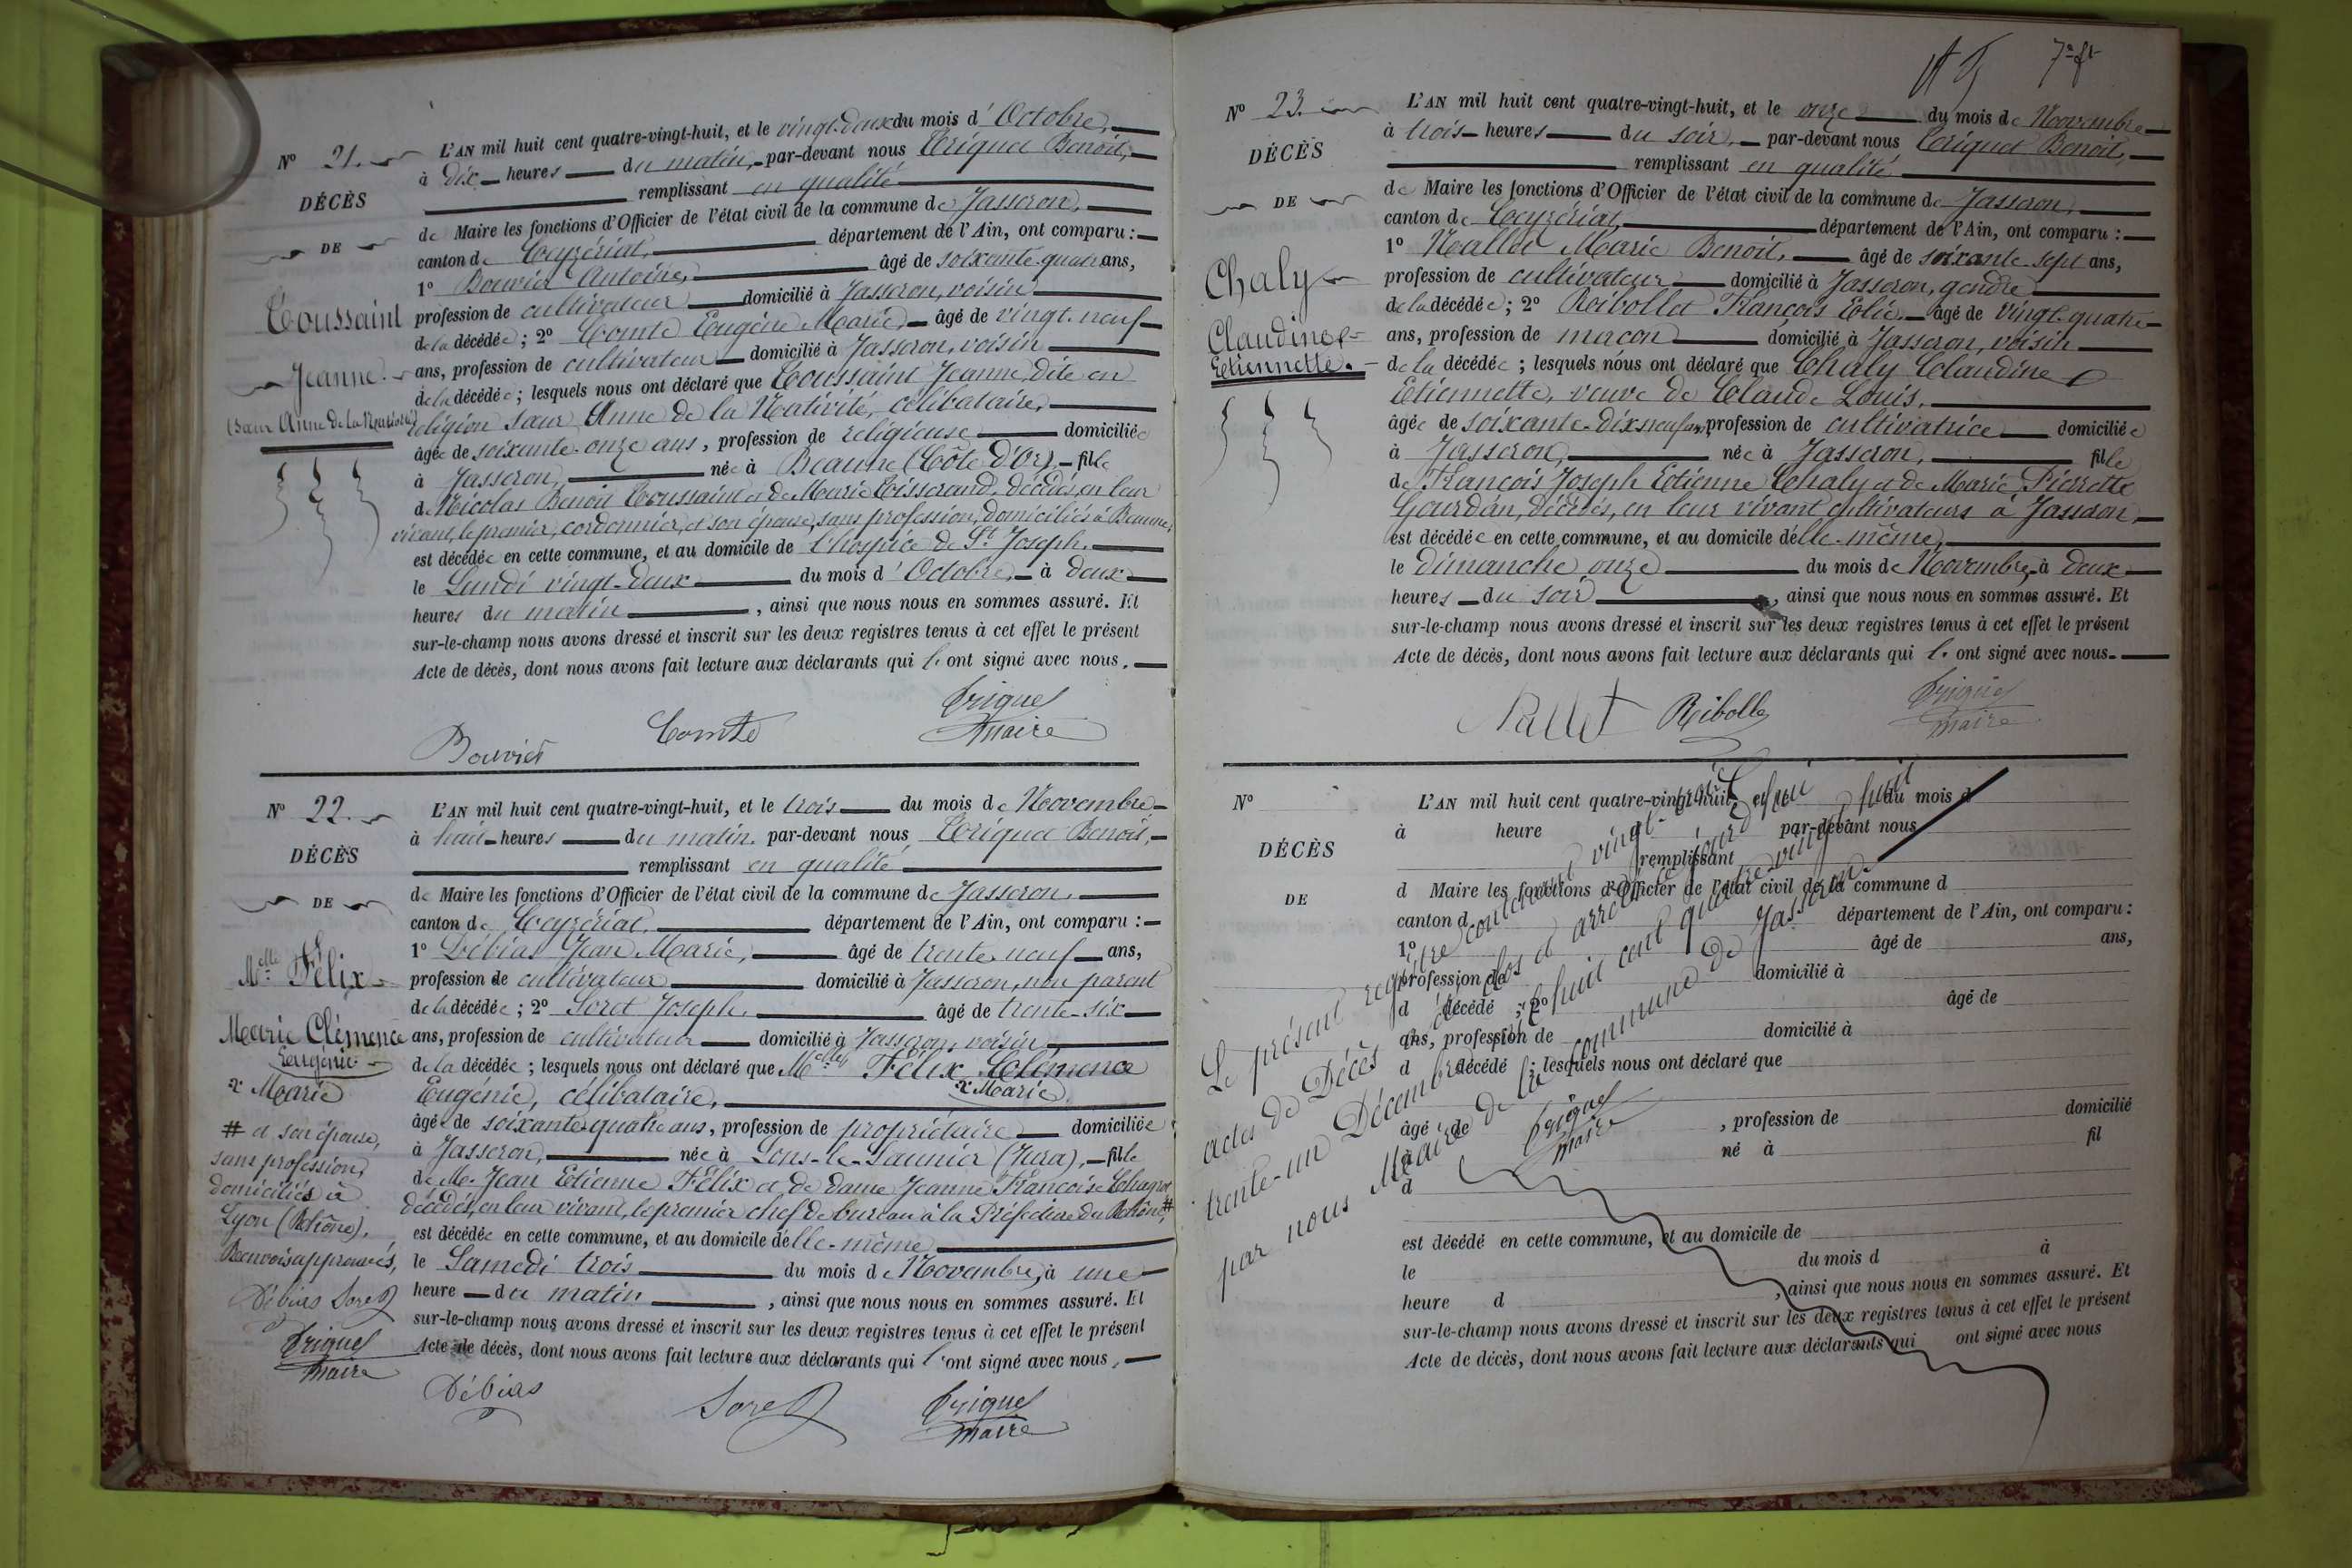 N° 21.
DÉCÈS
DE
Toussaint
Jeanne.
(Sœur Anne de la Nativité)
L'AN mil huit cent quatre-vingt-huit, et le vingt-deux du mois d'Octobre,
à dix heures du matin, par-devant nous Triquet Benoit,
remplissant en qualité
de Maire les fonctions d'Officier de l'état civil de la commune de Jasseron,
canton de Ceyzériat, département de l'Ain, ont comparu :
1° Bouvier Antoine, âgé de soixante-quatre ans,
profession de cultivateur domicilié à Jasseron, voisin
de la décédée ; 2° Comte Eugène Marie, âgé de vingt-neuf
ans, profession de cultivateur domicilié à Jasseron, voisin
de la décédée ; lesquels nous ont déclaré que Toussaint Jeanne, dite en
religion sœur Anne de la Nativité, célibataire,
âgée de soixante-onze ans, profession de religieuse domiciliée
à Jasseron, née à Beaune (Côte-d'Or), fille
de Nicolas Benoit Toussaint et de Marie Tisserand, décédés, en leur
vivant, le premier, cordonnier, et son épouse, sans profession, domiciliés à Beaune,
est décédée en cette commune, et au domicile de l'hospice de St Joseph.
le Lundi vingt-deux du mois d'Octobre, à deux
heures du matin, ainsi que nous nous en sommes assuré. Et
sur-le-champ nous avons dressé et inscrit sur les deux registres tenus à cet effet le présent
Acte de décès, dont nous avons fait lecture aux déclarants qui l'ont signé avec nous.
Bouvier Comte Triquet
Maire
N° 22.
DÉCÈS
DE
Melle Félix
Marie Clémence
Eugénie
x Marie
# et son épouse,
sans profession,
domiciliés à
Lyon (Rhône).
Renvois approuvés,
Débias Soret
Triquet
Maire
L'AN mil huit cent quatre-vingt-huit, et le trois du mois de Novembre
à huit heures du matin, par-devant nous Triquet Benoit,
remplissant en qualité
de Maire les fonctions d'Officier de l'état civil de la commune de Jasseron,
canton de Ceyzériat, département de l'Ain, ont comparu :
1° Débias Jean Marie, âgé de trente-neuf ans,
profession de cultivateur domicilié à Jasseron, non parent
de la décédée ; 2° Soret Joseph, âgé de trente-six
ans, profession de cultivateur domicilié à Jasseron, voisin
de la décédée ; lesquels nous ont déclaré que Melle Félix Clémence
x Marie
Eugénie, célibataire,
âgée de soixante-quatre ans, profession de propriétaire domiciliée
à Jasseron, née à Lons-le-Saunier (Jura), fille
de M. Jean Etienne Félix et de dame Jeanne Françoise
décédés, en leur vivant, le premier chef de bureau à la Préfecture du Rhône, #
est décédée en cette commune, et au domicile d'elle-même
le Samedi trois du mois de Novembre, à une
heure du matin, ainsi que nous nous en sommes assuré. Et
sur-le-champ nous avons dressé et inscrit sur les deux registres tenus à cet effet le présent
Acte de décès, dont nous avons fait lecture aux déclarants qui l'ont signé avec nous.
Débias Soret Triquet
Maire
7e ft
N° 23.
DÉCÈS
DE
Chaly
Claudine
Etiennette.
L'AN mil huit cent quatre-vingt-huit, et le onze du mois de Novembre
à trois heures du soir, par-devant nous Triquet Benoit,
remplissant en qualité
de Maire les fonctions d'Officier de l'état civil de la commune de Jasseron,
canton de Ceyzériat, département de l'Ain, ont comparu :
1° Nallet Marie Benoit, âgé de soixante-sept ans,
profession de cultivateur domicilié à Jasseron, gendre
de la décédée ; 2° Ribollet François Elie, âgé de vingt-quatre
ans, profession de maçon domicilié à Jasseron, voisin
de la décédée ; lesquels nous ont déclaré que Chaly Claudine
Etiennette, veuve de Claude Louis,
âgée de soixante-dix-neuf ans, profession de cultivatrice domiciliée
à Jasseron, née à Jasseron, fille
de François Joseph Etienne Chaly et de Marie Pierrette
Gourdan, décédés, en leur vivant cultivateurs à Jasseron,
est décédée en cette commune, et au domicile d'elle-même,
le dimanche onze du mois de Novembre, à deux
heures du soir, ainsi que nous nous en sommes assuré. Et
sur-le-champ nous avons dressé et inscrit sur les deux registres tenus à cet effet le présent
Acte de décès, dont nous avons fait lecture aux déclarants qui l'ont signé avec nous.
Nallet Ribollet Triquet
maire
N°
DÉCÈS
DE
L'AN mil huit cent quatre-vingt-huit, et le du mois d
à heure d par-devant nous
remplissant
d Maire les fonctions d'Officier de l'état civil de la commune d
canton d département de l'Ain, ont comparu :
1° âgé de ans,
profession de domicilié à
d décédé ; 2° âgé de
ans, profession de domicilié à
d décédé ; lesquels nous ont déclaré que
âgé de , profession de domicilié
à né à fil
d
est décédé en cette commune, et au domicile de
le du mois d à
heure d , ainsi que nous nous en sommes assuré. Et
sur-le-champ nous avons dressé et inscrit sur les deux registres tenus à cet effet le présent
Acte de décès, dont nous avons fait lecture aux déclarants qui ont signé avec nous
Le présent registre contenant vingt-trois
actes de Décès a été clos et arrêté ce jourd'hui
trente-un Décembre mil huit cent quatre-vingt-huit
par nous Maire de la commune de Jasseron.
Triquet
maire